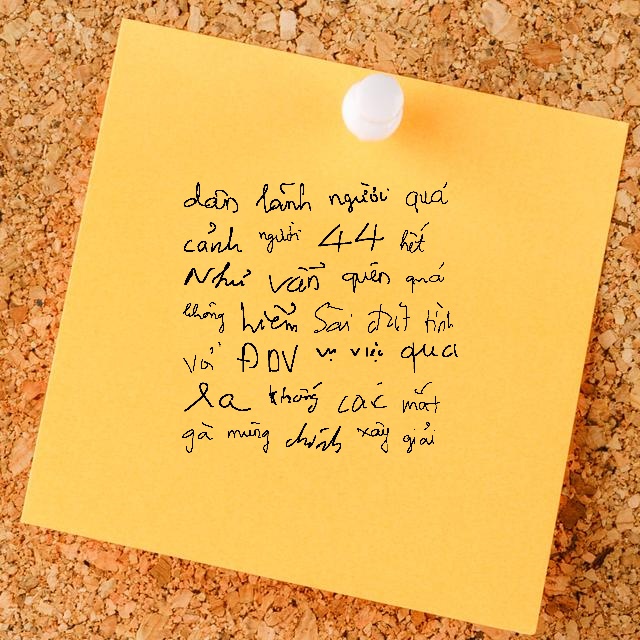 dân lãnh người quá
cảnh người 44 hết
Như vấn quên quá
không hiểm Sài đứt tình
với ĐDV vụ việc qua
la không các mắt
gà mừng chính xây giải